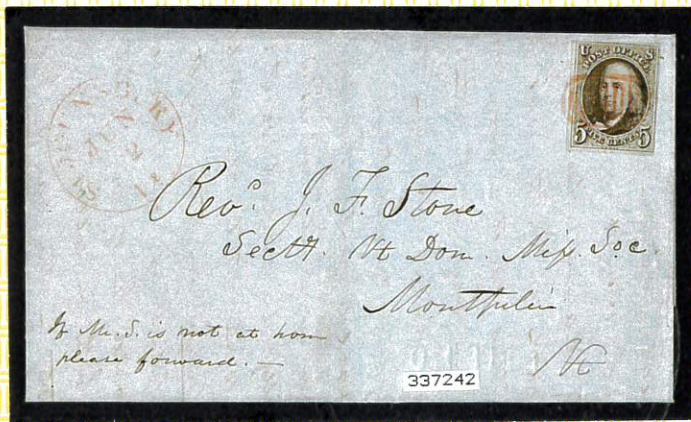 JUN
2
U S
POST OFFICE
5 FIVE CENTS 5
Revd. J. F. Stone
Secty. Vt Dom. Miss. Soc.
Montpelier
Vt
If Mr. S. is not at home
please forward. —
337242